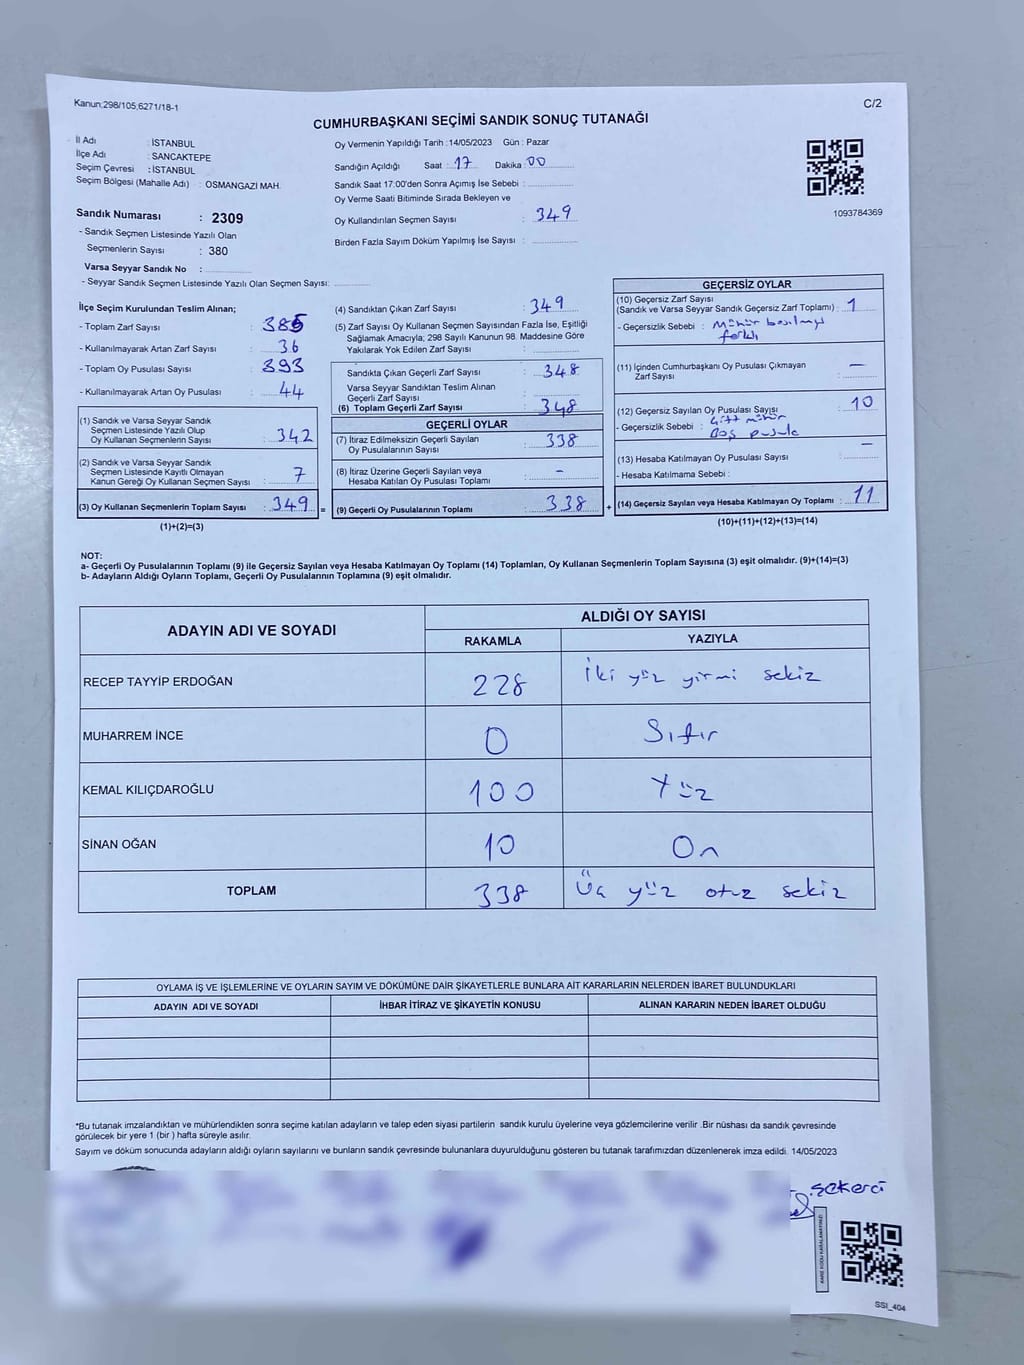 Kanun;298/105,6271/18-1
C/2
CUMHURBAŞKANI SEÇİMİ SANDIK SONUÇ TUTANAĞI
İl Adı : İSTANBUL
İlçe Adı : SANCAKTEPE
Seçim Çevresi : İSTANBUL
Seçim Bölgesi (Mahalle Adı) : OSMANGAZİ MAH.
Sandık Numarası : 2309
- Sandık Seçmen Listesinde Yazılı Olan
Seçmenlerin Sayısı : 380
Varsa Seyyar Sandık No :
- Seyyar Sandık Seçmen Listesinde Yazılı Olan Seçmen Sayısı:
Oy Vermenin Yapıldığı Tarih : 14/05/2023 Gün : Pazar
Sandığın Açıldığı Saat : 17 Dakika : 00
Sandık Saat 17:00'den Sonra Açımış İse Sebebi :
Oy Verme Saati Bitiminde Sırada Bekleyen ve
Oy Kullandırılan Seçmen Sayısı : 349
Birden Fazla Sayım Döküm Yapılmış İse Sayısı :
1093784369
İlçe Seçim Kurulundan Teslim Alınan;
- Toplam Zarf Sayısı : 385
- Kullanılmayarak Artan Zarf Sayısı : 36
- Toplam Oy Pusulası Sayısı : 393
- Kullanılmayarak Artan Oy Pusulası : 44
(1) Sandık ve Varsa Seyyar Sandık
Seçmen Listesinde Yazılı Olup
Oy Kullanan Seçmenlerin Sayısı : 342
(2) Sandık ve Varsa Seyyar Sandık
Seçmen Listesinde Kayıtlı Olmayan
Kanun Gereği Oy Kullanan Seçmen Sayısı : 7
(3) Oy Kullanan Seçmenlerin Toplam Sayısı : 349 =
(1)+(2)=(3)
(4) Sandıktan Çıkan Zarf Sayısı : 349
(5) Zarf Sayısı Oy Kullanan Seçmen Sayısından Fazla İse, Eşitliği
Sağlamak Amacıyla; 298 Sayılı Kanunun 98. Maddesine Göre
Yakılarak Yok Edilen Zarf Sayısı :
Sandıkta Çıkan Geçerli Zarf Sayısı : 348
Varsa Seyyar Sandıktan Teslim Alınan
Geçerli Zarf Sayısı :
(6) Toplam Geçerli Zarf Sayısı : 348
GEÇERLİ OYLAR
(7) İtiraz Edilmeksizin Geçerli Sayılan
Oy Pusulalarının Sayısı : 338
(8) İtiraz Üzerine Geçerli Sayılan veya
Hesaba Katılan Oy Pusulası Toplamı : -
(9) Geçerli Oy Pusulalarının Toplamı : 338 +
GEÇERSİZ OYLAR
(10) Geçersiz Zarf Sayısı
(Sandık ve Varsa Seyyar Sandık Geçersiz Zarf Toplamı) : 1
- Geçersizlik Sebebi : Mühür basılmış
farklı
(11) İçinden Cumhurbaşkanı Oy Pusulası Çıkmayan
Zarf Sayısı : -
(12) Geçersiz Sayılan Oy Pusulası Sayısı : 10
- Geçersizlik Sebebi : Çift mühür
Boş pusula
(13) Hesaba Katılmayan Oy Pusulası Sayısı : -
- Hesaba Katılmama Sebebi :
(14) Geçersiz Sayılan veya Hesaba Katılmayan Oy Toplamı : 11
(10)+(11)+(12)+(13)=(14)
NOT:
a- Geçerli Oy Pusulalarının Toplamı (9) ile Geçersiz Sayılan veya Hesaba Katılmayan Oy Toplamı (14) Toplamları, Oy Kullanan Seçmenlerin Toplam Sayısına (3) eşit olmalıdır. (9)+(14)=(3)
b- Adayların Aldığı Oyların Toplamı, Geçerli Oy Pusulalarının Toplamına (9) eşit olmalıdır.
ADAYIN ADI VE SOYADI
ALDIĞI OY SAYISI
RAKAMLA YAZIYLA
RECEP TAYYİP ERDOĞAN 228 İki yüz yirmi sekiz
MUHARREM İNCE 0 Sıfır
KEMAL KILIÇDAROĞLU 100 Yüz
SİNAN OĞAN 10 On
TOPLAM 338 Üç yüz otuz sekiz
OYLAMA İŞ VE İŞLEMLERİNE VE OYLARIN SAYIM VE DÖKÜMÜNE DAİR ŞİKAYETLERLE BUNLARA AİT KARARLARIN NELERDEN İBARET BULUNDUKLARI
ADAYIN ADI VE SOYADI İHBAR İTİRAZ VE ŞİKAYETİN KONUSU ALINAN KARARIN NEDEN İBARET OLDUĞU
*Bu tutanak imzalandıktan ve mühürlendikten sonra seçime katılan adayların ve talep eden siyasi partilerin sandık kurulu üyelerine veya gözlemcilerine verilir .Bir nüshası da sandık çevresinde
görülecek bir yere 1 (bir ) hafta süreyle asılır.
Sayım ve döküm sonucunda adayların aldığı oyların sayılarını ve bunların sandık çevresinde bulunanlara duyurulduğunu gösteren bu tutanak tarafımızdan düzenlenerek imza edildi. 14/05/2023
Şekerci
KARE KODU KARALAMAYINIZ!
SSI_404